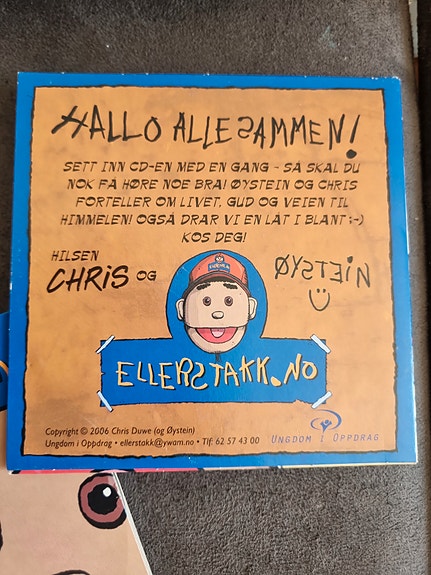 HALLO ALLESAMMEN!
SETT INN CD-EN MED EN GANG - SÅ SKAL DU
NOK FÅ HØRE NOE BRA! ØYSTEIN OG CHRIS
FORTELLER OM LIVET, GUD OG VEIEN TIL
HIMMELEN! OGSÅ DRAR VI EN LÅT I BLANT :-)
KOS DEG!
HILSEN
CHRIS OG
ØYSTEIN
ELLERSTAKK.NO
Copyright © 2006 Chris Duwe (og Øystein)
Ungdom i Oppdrag • ellerstakk@ywam.no • Tlf: 62 57 43 00
UNGDOM I OPPDRAG